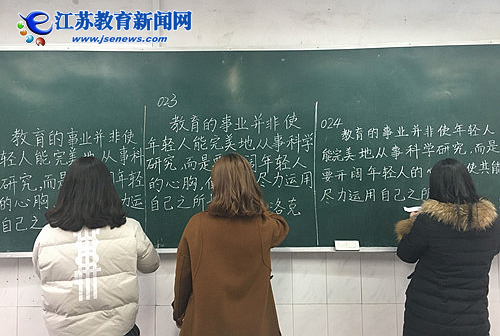 江苏教育新闻网
www.jsenews.com
教育的事业并非使
轻人能完美地从事科
研究,而 年轻
的心胸, 运用
自己之
023
教育的事业并非使
年轻人能完美地从事科学
研究,而是要 阔年轻人
的心胸, 尽力运用
自己之所 洛克
024
教育的事业并非使年轻人
能完美地从事科学研究,而是
要开阔年轻人的心 使其能
尽力运用自己之所